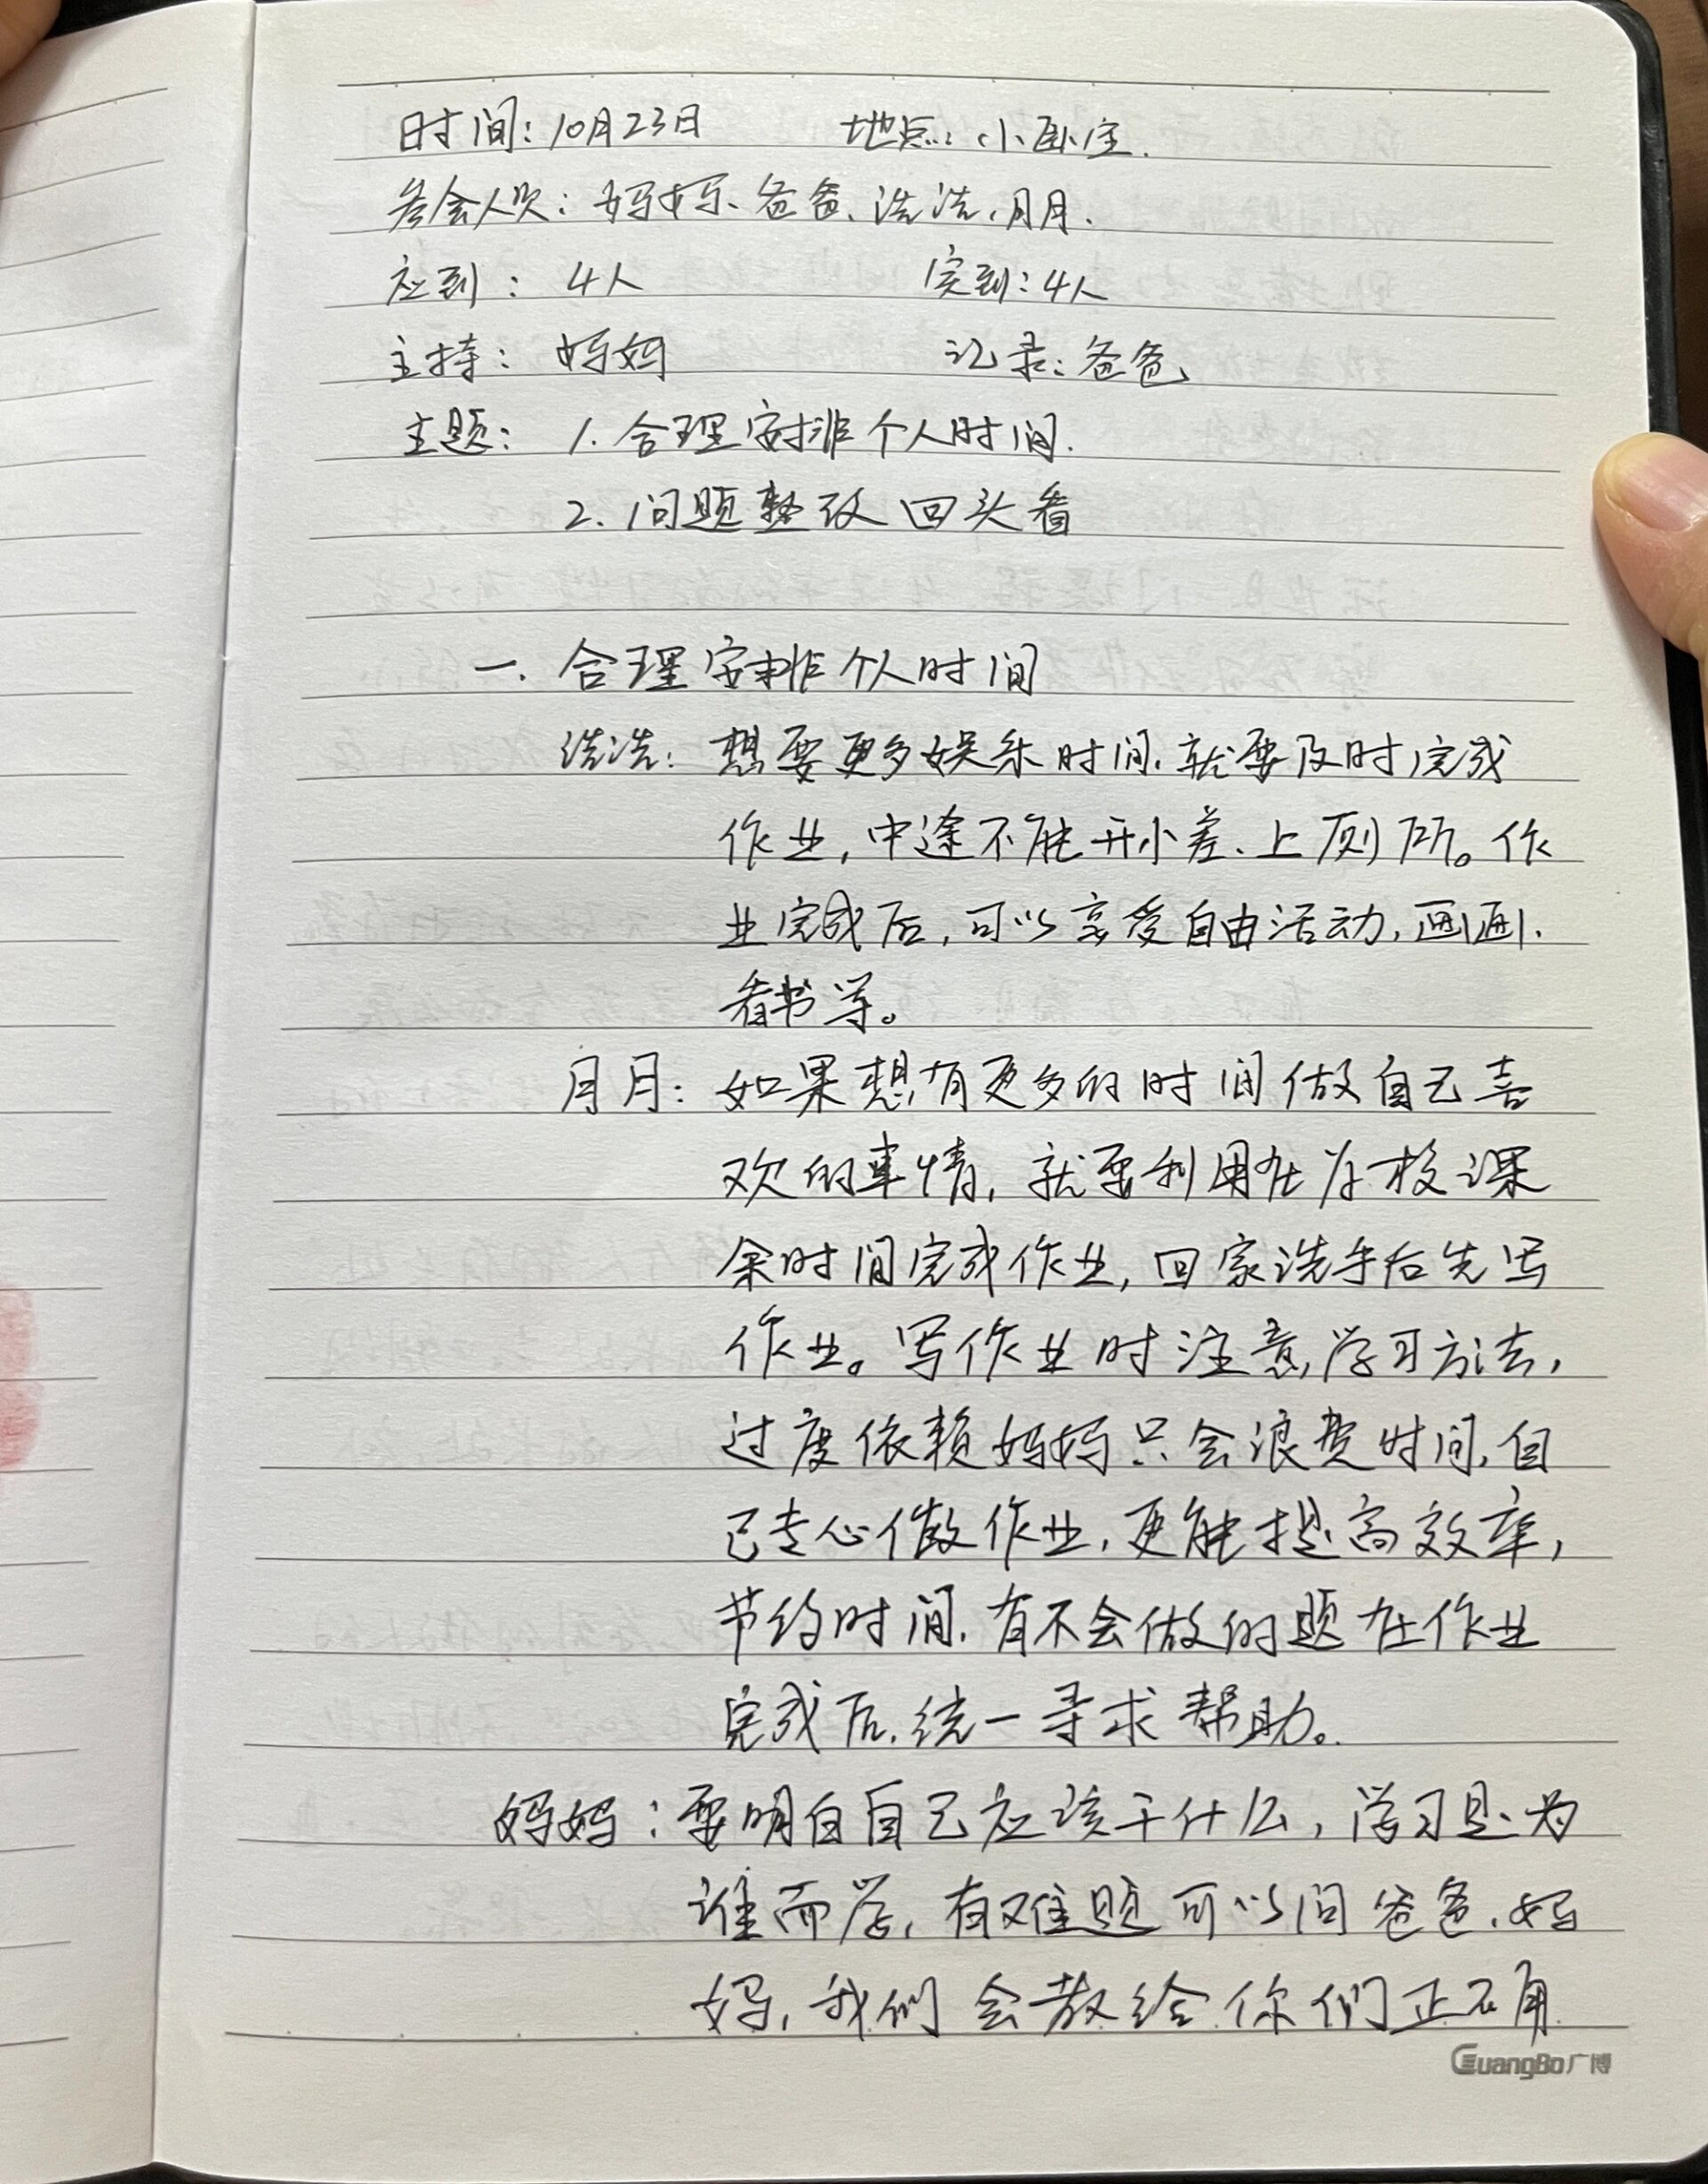 时间：10月23日 地点：小卧室.
参会人次：妈妈、爸爸、浩浩、月月.
应到：4人 实到：4人
主持：妈妈 记录：爸爸
主题：1.合理安排个人时间.
2.问题整改回头看
一.合理安排个人时间
浩浩：想要更多娱乐时间,就要及时完成
作业,中途不能开小差、上厕所。作
业完成后,可以享受自由活动,画画、
看书等。
月月：如果想有更多的时间做自己喜
欢的事情,就要利用在学校课
余时间完成作业,回家洗手后先写
作业。写作业时注意学习方法,
过度依赖妈妈只会浪费时间,自
己专心做作业,更能提高效率,
节约时间.有不会做的题在作业
完成后,统一寻求帮助。
妈妈：要明白自己应该干什么,学习是为
谁而学,有难题可以问爸爸、妈
妈,我们会教给你们正确
GuangBo广博